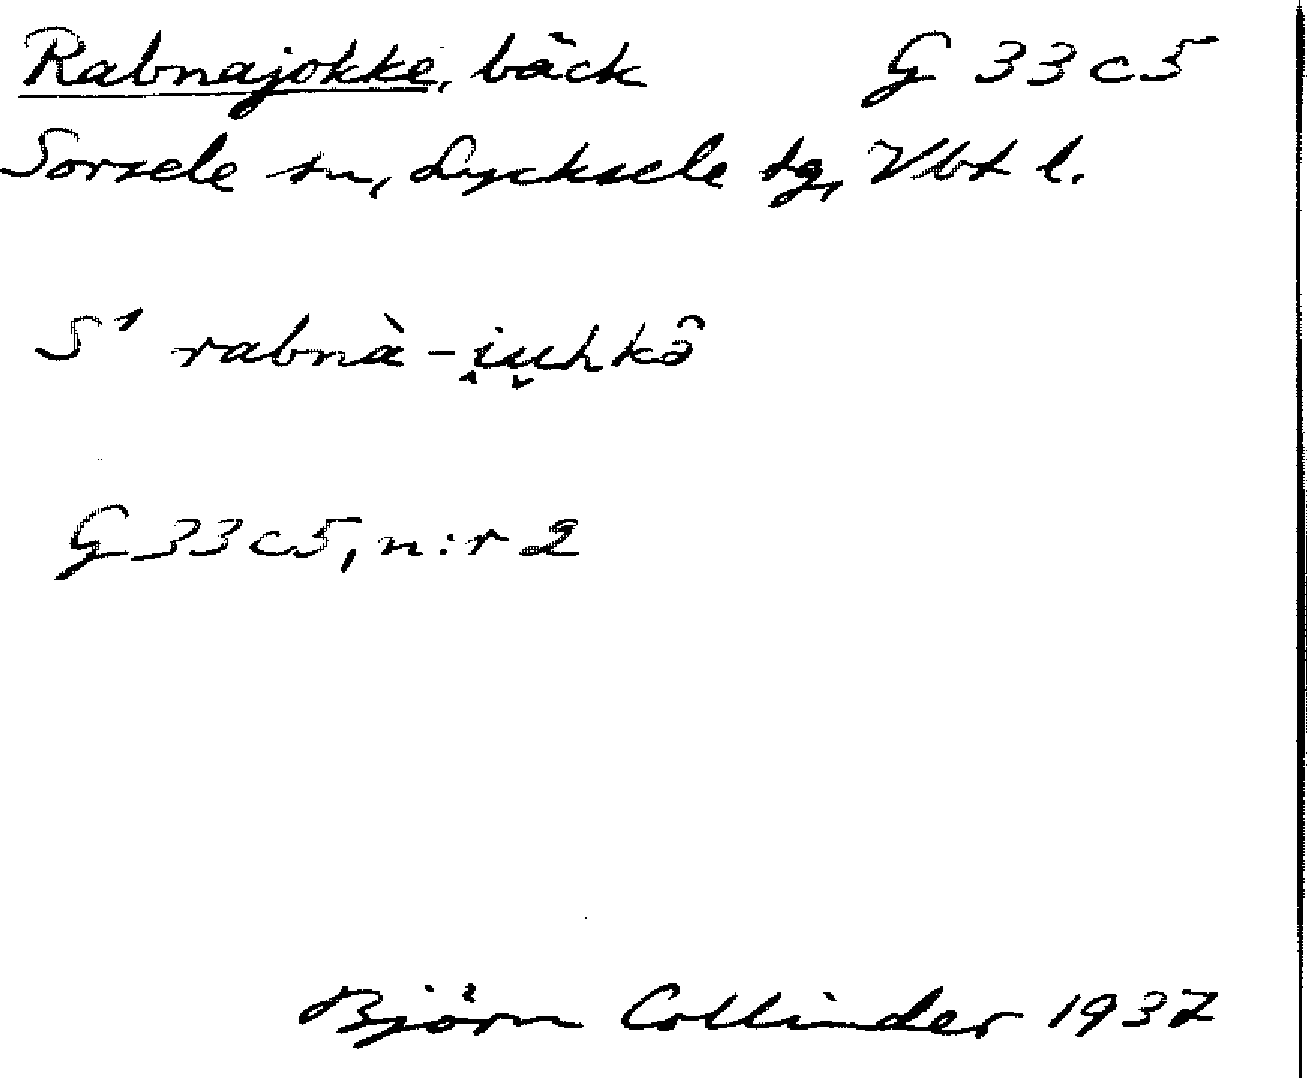 Rabnajokke, bäck G 33 c 5
Sorsele sn, Lycksele tg, Vbt l.
S¹ rabnà-i̭u̬hkə̂
G 33 c 5, n:r 2
Björn Collinder 1937